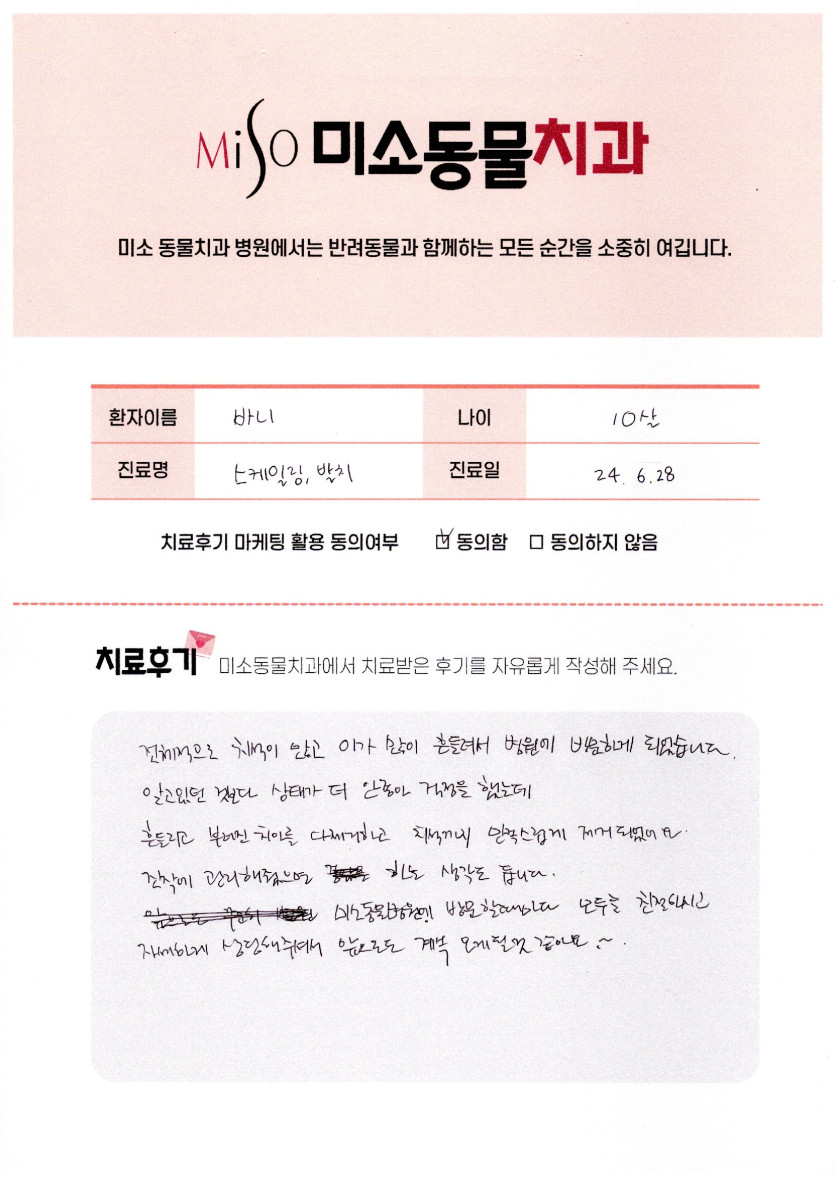 MiSO 미소동물치과
미소 동물치과 병원에서는 반려동물과 함께하는 모든 순간을 소중히 여깁니다.
환자이름 바니 나이 10살
진료명 스케일링, 발치 진료일 24. 6.28
치료후기 마케팅 활용 동의여부 ☑ 동의함 □ 동의하지 않음
치료후기 미소동물치과에서 치료받은 후기를 자유롭게 작성해 주세요.
전체적으로 치석이 많고 이가 많이 흔들려서 병원에 방문하게 되었습니다.
알고있던 것보다 상태가 더 안좋아 걱정을 했는데
흔들리고 부러진 치아를 다제거하고 치석까지 만족스럽게 제거되었어요.
진작에 관리해줬으면 하는 생각도 듭니다.
미소동물병원에 방문할때마다 모두들 친절하시고
자세하게 상담해주셔서 앞으로도 계속 오게될것 같아요~.